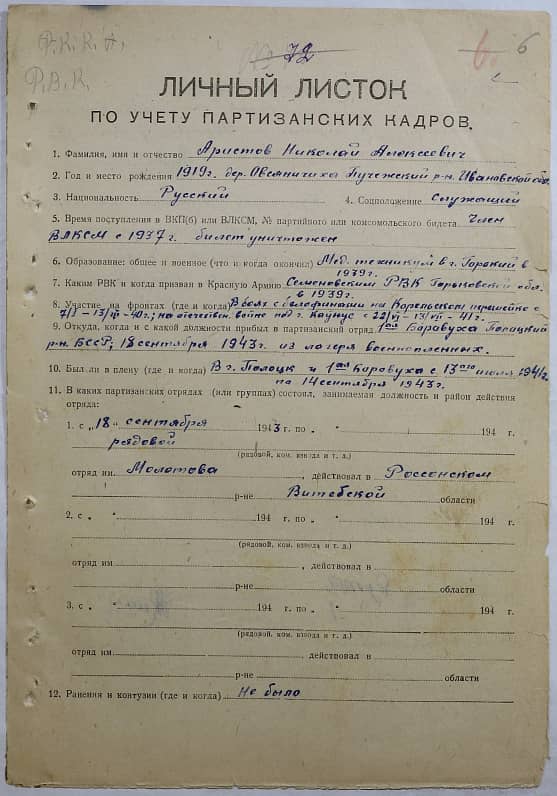 Р.К.К.А,
72
6
Р.В.К.
ЛИЧНЫЙ ЛИСТОК
ПО УЧЕТУ ПАРТИЗАНСКИХ КАДРОВ.
1. Фамилия, имя и отчество Аристов Николай Алексеевич
2. Год и место рождения 1919г. дер. Овсяничиха Пучежский р-н. Ивановской обл.
3. Национальность Русский 4. Соцположение Служащий
5. Время поступления в ВКП(б) или ВЛКСМ, № партийного или комсомольского билета Член
ВЛКСМ с 1937г. билет уничтожен
6. Образование: общее и военное (что и когда окончил) Мед. техникум в г. Горький в
1939г.
7. Каким РВК и когда призван в Красную Армию Семеновским РВК Горьковской обл.
в 1939г.
8. Участие на фронтах (где и когда) В боях с белофинами на Карельском перешейке с
7/I – 13/III – 40г.; на отечествен. войне под г. Каунус с 22/VI – 13/VII – 41г.
9. Откуда, когда и с какой должности прибыл в партизанский отряд 1ая Боровуха Полоцкий
р-н. БССР, 18 сентября 1943г. из лагеря военнопленных.
10. Был ли в плену (где и когда) В г. Полоцк и 1ая Боровуха с 13ого июля 1941г
по 14 сентября 1943г.
11. В каких партизанских отрядах (или группах) состоял, занимаемая должность и район действия
отряда:
1. с „18“ сентября 1943 г. по „ “ 194 г.
рядовой
(рядовой, ком. взвода и т. д.)
отряд им. Молотова действовал в Россонском
р-не Витебской области
2. с „ “ 194 г. по „ “ 194 г.
(рядовой, ком. взвода и т. д.)
отряд им. , действовал в
р-не области
3. с „ “ 194 г. по „ “ 194 г.
(рядовой, ком. взвода и т. д.)
отряд им. действовал в
р-не области
12. Ранения и контузии (где и когда) Не было